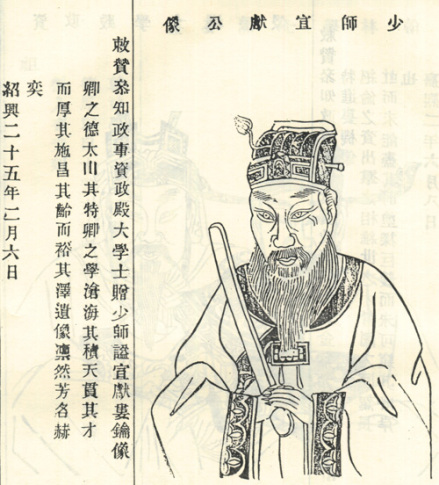 少師宣獻公像
敕贊叅知政事資政殿大學士贈少師諡宣獻婁鑰像
卿之德太山其特卿之學滄海其積天貫其才
而厚其施昌其齡而裕其澤遺像凛然芳名赫
奕
紹興二十五年二月六日